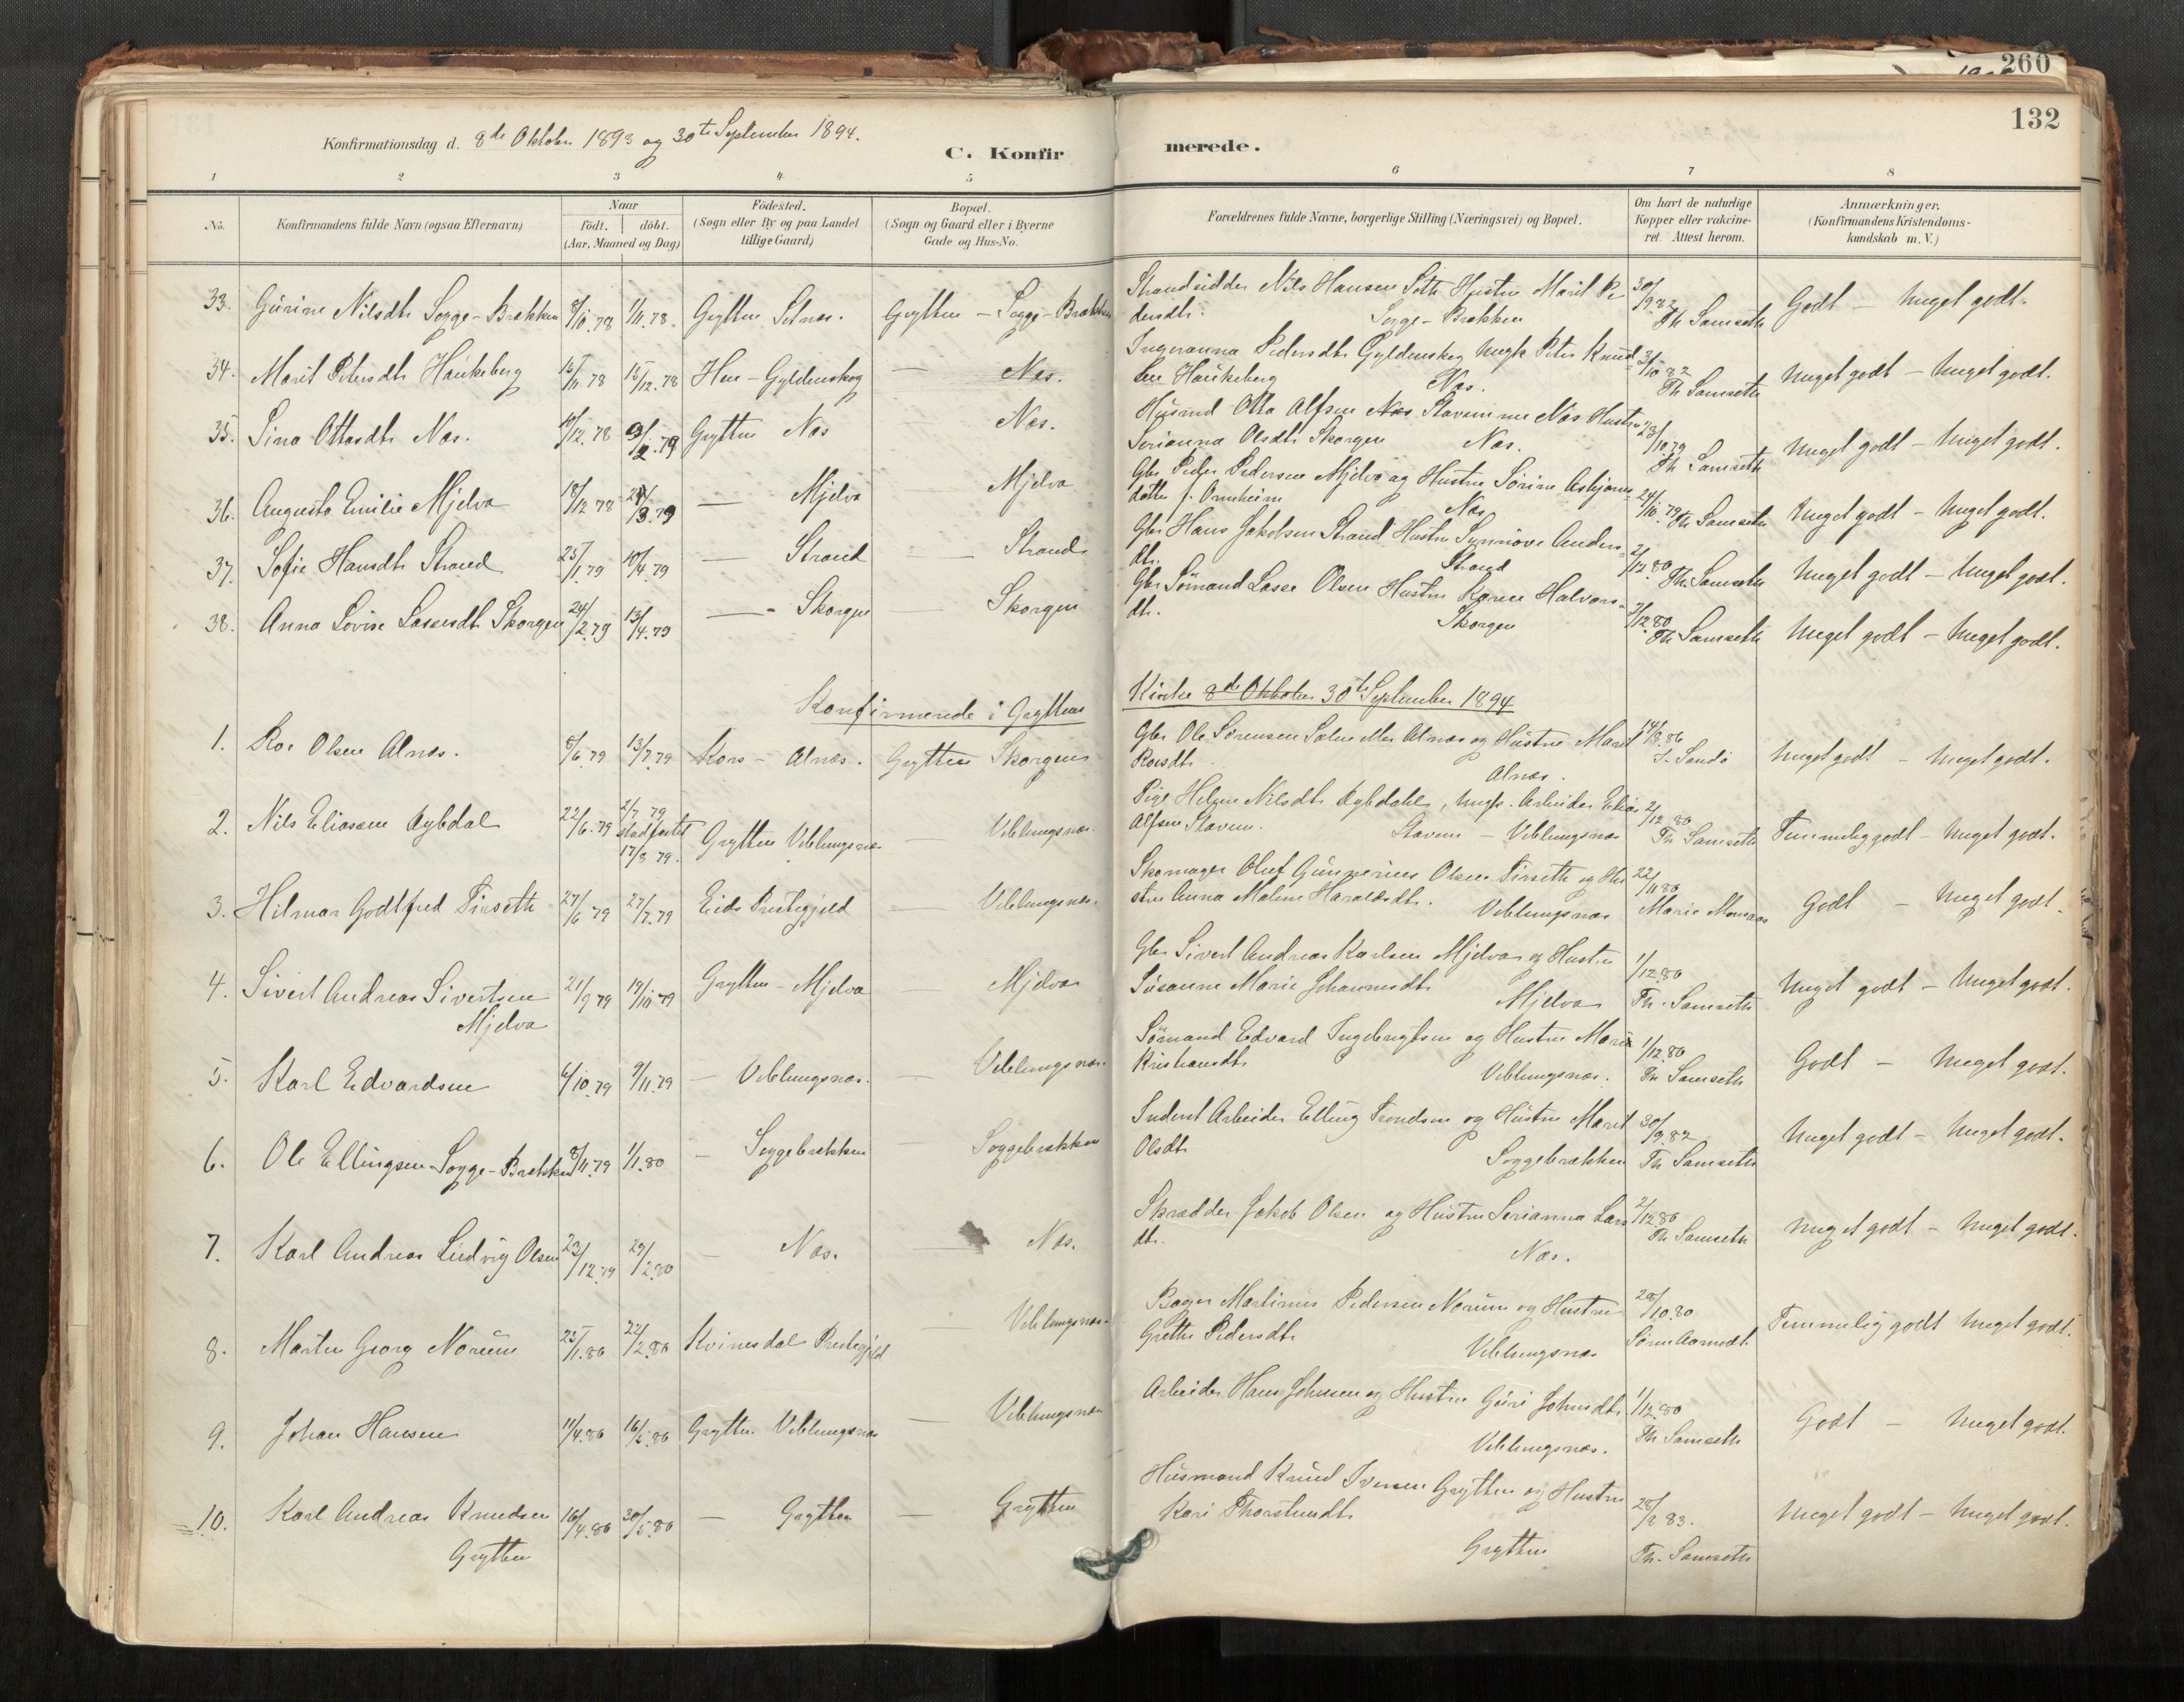 260
132
Konfirmationsdag d. 8de Oktober 1893 og 30te September 1894.
C. Konfir
merede.
1 2 3 4 5 6 7 8
No.
Konfirmandens fulde Navn (ogsaa Efternavn)
Naar
födt. döbt.
(Aar, Maaned og Dag)
Födested.
(Sogn eller By og paa Landet
tillige Gaard)
Bopæl.
(Sogn og Gaard eller i Byerne
Gade og Hus-No.
Forældrenes fulde Navne, borgerlige Stilling (Næringsvei) og Bopæl.
Om havt de naturlige
Kopper eller vakcine-
ret. Attest herom.
Anmærkninger.
(Konfirmandens Kristendoms-
kundskab m. V.)
33. Gurine Nilsdtr Sogge-Brækken 8/10.78 1/11.78. Grytten Setnes. Grytten - Sogge-Brækken
Strandsidder Nils Hansen Hustru Marit Pe
dersdtr. Sogge-Brækken 30/9.82 Th Samseth Godt - Meget godt.
34. Marit Petersdtr Haukeberg 16/11.78 15/12.78 Hen - Gyldenskog — Næs.
Ingeranna Pedersdtr Gyldenskog Ungk Peter Knud
sen Haukeberg Næs. 3/10 82 Th Samseth Meget godt - Meget godt.
35. Sina Ottosdtr Næs. 19/12.78 9/2.79 Grytten Næs Næs.
Husmd Otto Alfsen Næs Stavem me Næs Hustru
Serianna Olsdtr Skorgen Næs. 23/10.79 Th Samseth Meget godt - Meget godt.
36. Augusta Emilie Mjelva 18/12 78 /3.79 — Mjelva Mjelva
Gbr Peder Pedersen Mjelva og Hustru Sørine Asbjørns
datter f. Ormheim Næs 24/10.79 Th Samseth Meget godt - Meget godt.
37. Sofie Hansdtr Strand 25/1.79 10/4.79 — Strand — Strand
Gbr Hans Jakobsen Strand Hustru Synnöve Anders
dtr. Strand 2/12.80 Th. Samseth Meget godt - Meget godt.
38. Anna Lovise Lassesdtr Skorgen 24/2.79 13/4.79 — Skorgen — Skorgen
Gbr Sömand Lasse Olsen Hustru Karen Halvors-
dtr. Skorgen 2/12.80 Th Samseth Meget godt - Meget godt.
Konfirmerede i Gryttens
Kirke 8de Oktober 30te September 1894
1. Roe Olsen Alnæs. 8/6.79 13/7.79 Kors - Alnæs. Grytten Skorgen
Gbr Ole Sörensen Alnæs og Hustru Marit
Roesdtr. Alnæs. 14/8.86 S. Sandö Meget godt - Meget godt.
2. Nils Eliassen Agbdal 22/6.79 2/7 79 stadfæstet 17/8 79. Grytten Veblungsnæs — Veblungsnæs.
Pige Helene Nilsdtr Agbdahl, Ungk. Arbeider Elias
Alfsen Stavem. Stavem - Veblungsnæs 2/12 80 Th Samseth Temmelig godt - Meget godt.
3. Hilmar Godtfred Tirseth 27/6 79 27/7.79 Eids Prestegjeld — Veblungsnæs.
Skomager Oluf Gunnerius Olsen Tirseth og Hu
stru Anna Malene Haraldsdtr. Veblungsnæs 22/11 80 Marie Godt - Meget godt.
4. Sivert Andreas Sivertsen 21/9 79 19/10.79 Grytten - Mjelva — Mjelva
Mjelva
Gbr Sivert Andreas Karlsen Mjelva og Hustru
Susanne Marie Johannesdtr Mjelva 1/12.80 Th. Samseth Meget godt - Meget godt.
5. Karl Edvardsen 6/10.79 9/11.79 — Veblungsnæs. — Veblungsnæs.
Sömand Edvard Ingebrigtsen og Hustru Marie
Kristiansdtr Veblungsnæs. 1/12.80 Th Samseth Godt - Meget godt.
6. Ole Ellingsen Sogge-Brækken 8/11.79 1/1.80 — Soggebrækken Soggebrækken
Inderst Arbeider Elling Trondsen og Hustru Marit
Olsdtr Soggebrækken 30/9.82 Th Samseth Meget godt - Meget godt.
7. Karl Andreas Ludvig Olsen 23/12.79 29/2.80 — Næs. Næs.
Skrædder Jakob Olsen og Hustru Serianna Lars
dtr. Næs. 2/12.80 Th Samseth Meget godt - Meget godt.
8. Martin Georg Norum 25/1.80 22/2.80 Kvinesdal Prestegjeld Veblungsnæs.
Bager Martinus Pedersen Norum og Hustru
Grethe Pedersdtr Veblungsnæs 20/10.80 Temmelig godt Meget godt.
9. Johan Hansen 11/4.80 16/5.80 Grytten Veblungsnæs — Veblungsnæs
Arbeider Hans Johnsen og Hustru Guri Johnsdtr
Veblungsnæs. 1/12.80 Th Samseth Godt - Meget godt.
10. Karl Andreas Knudsen 16/4.80 30/5.80 — Grytten — Grytten
Grytten
Husmand Knud Iversen Grytten og Hustru
Kari Thorstensdtr Grytten 28/8 83. Th. Samseth Meget godt - Meget godt.